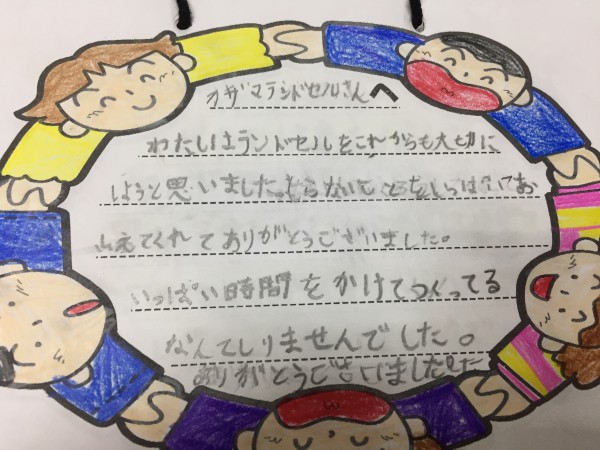 オザマランドセルさんへ
わたしはランドセルをこれからも大切に
しようと思いました。しらないことをいっぱいてお
しえてくれてありがとうございました。
いっぱい時間をかけてつくってる
なんてしりませんでした。
ありがとうございました